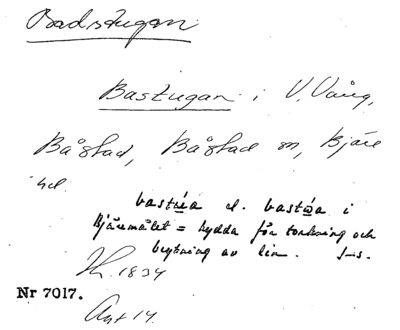 Badstugan
Bastugan i V. Vång,
Båstad, Båstad sn, Bjäre
hd.
bastúa el. bastòa i
Bjäremålet = hydda för torkning och
brytning av lin. J-s.
H. 1834
Nr 7017.
Ant 14.